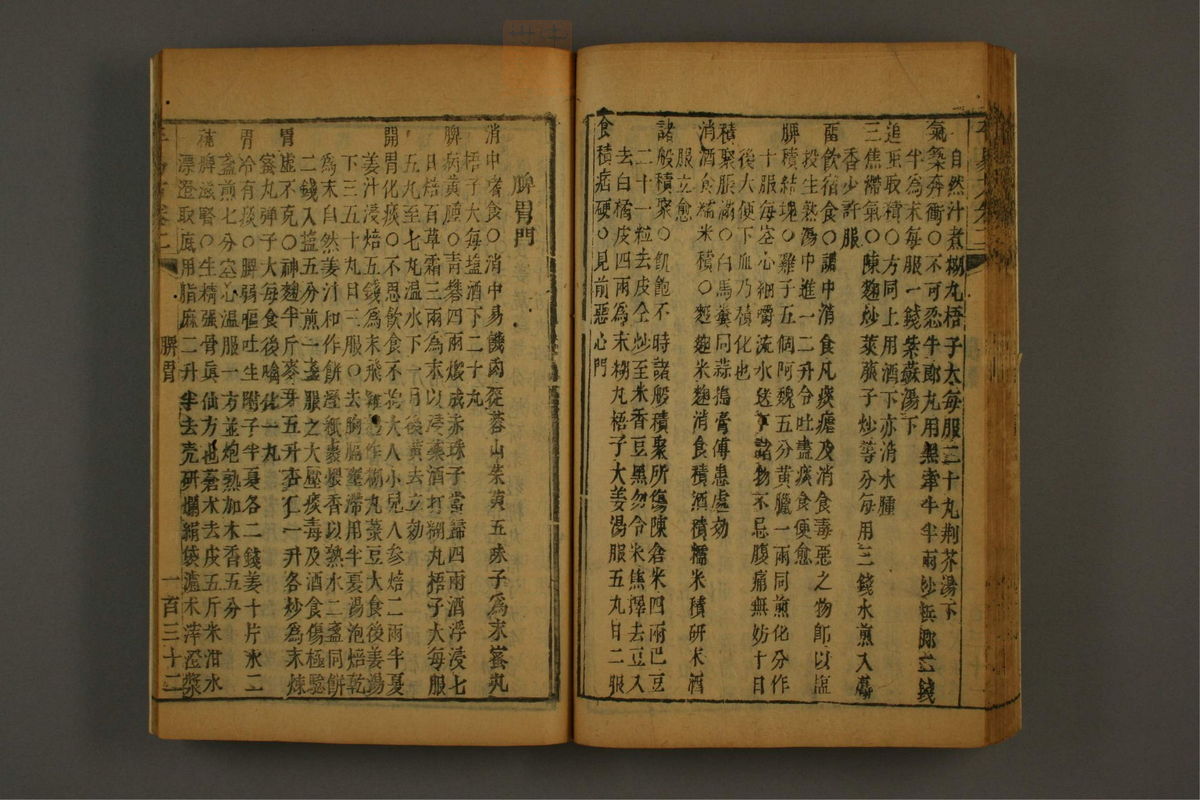 自然汁煮糊丸梧子大每服二十丸荆芥湯下
氣築奔衝○不可忍牛郎丸用黑牽牛半兩炒梹榔二錢
半為末每服一錢紫蘇湯下
追虫取積○方同上用酒下亦消水腫
三焦滯氣○陳麹炒萊菔子炒等分每用三錢水煎入麝
香少許服
畱飲宿食○膈中消食凡痰瘧及消食毒惡之物郎以塩
投生熟湯中進一二升令吐盡痰食便愈
脾積結塊○雞子五個阿魏五分黃臘一兩同煎化分作
十服每空心細嚼流水送下諸物不忌腹痛無妨十日
後大便下血乃積化也
積聚脹滿○白馬糞同蒜搗膏傅患處効
消酒食糯米積○麪麹米麹消食積酒積糯米積研末酒
服立愈
諸般積聚○飢飽不時諸般積聚所傷陳倉米四兩巴豆
二十一粒去皮仝炒至米香豆黑勿令米焦擇去豆入
去白橘皮四兩為末糊丸梧子大姜湯服五丸日二服
食積痞硬○見前惡心門
脾胃門
消中者食○消中易饑肉蓯蓉山茱萸五味子為末蜜丸
梧子大每塩酒下二十丸
脾病黃腫○青礬四兩煅成赤珠子當歸四兩酒浮浸七
日焙百草霜三兩為末以浸藥酒打糊丸梧子大每服
五丸至七丸溫水下一月後黃去立効
開胃化痰○不思飲食不拘大人小兒人參焙二兩半夏
姜汁浸焙五錢為末飛麵作糊丸菉豆大食後姜湯
下三五十丸日三服○去胸膈壅滯用半夏湯泡焙乾
為末自然姜汁和作餅濕紙裹煨香以熟水二盞同餅
二錢入塩五分煎一盞服之大壓痰毒及酒食傷極驗
胃虛不克○神麹半斤麥芽五升杏仁一升各炒為末煉
蜜丸彈子大每食後嚼化一丸
胃冷有痰○脾弱嘔吐生附子半夏各二錢姜十片水二
盞煎七分空心溫服一方並炮熟加木香五分
健脾滋腎○生精強骨眞仙方也蒼术去皮五斤米泔水
漂澄取底用脂麻二升半去壳研爛絹袋濾末萍澄漿
脾胃
一百三十二